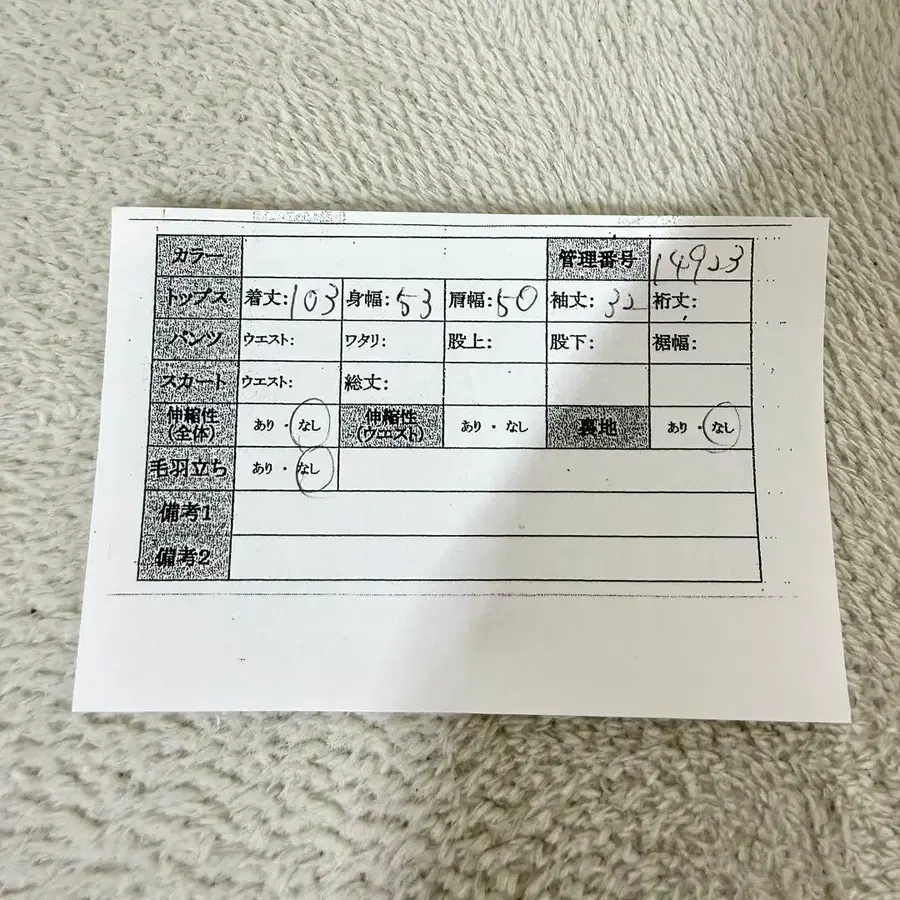 カラー 管理番号 14923
トップス 着丈:103 身幅:53 肩幅:50 袖丈:32 裄丈:
パンツ ウエスト: ワタリ: 股上: 股下: 裾幅:
スカート ウエスト: 総丈:
伸縮性(全体) あり・なし 伸縮性(ウエスト) あり・なし 裏地 あり・なし
毛羽立ち あり・なし
備考1
備考2